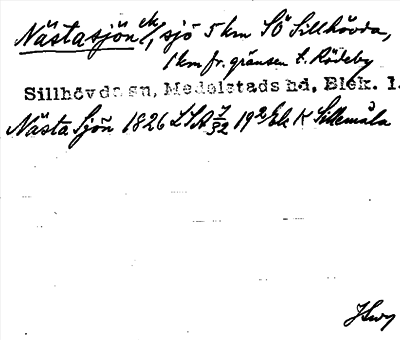 Nästasjön ek/, sjö 5 km SÖ Sillhövda,
1 km fr. gränsen t. Rödeby
Sillhövda sn, Medelstads hd, Blek. l.
Nästa Sjön 1826 LSA 7/32 19 2/ Ek K Sillemåla